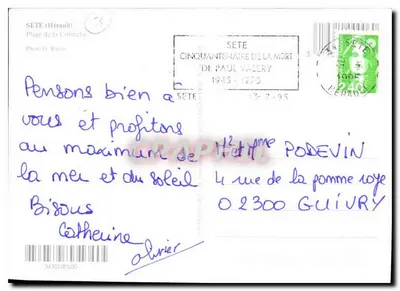 SETE (Hérault)
Plage de la Corniche
SETE
CINQUANTENAIRE DE LA MORT
DE PAUL VALERY
1945 - 1995
SETE
13-7-95
34 SETE
1995
HERAULT
Pensons bien a
vous et profitons
au maximum de
la mer et du soleil
Bisous
Catherine
olivier
Mr et Mme PODEVIN
4 rue de la pomme roye
02300 GUIVRY